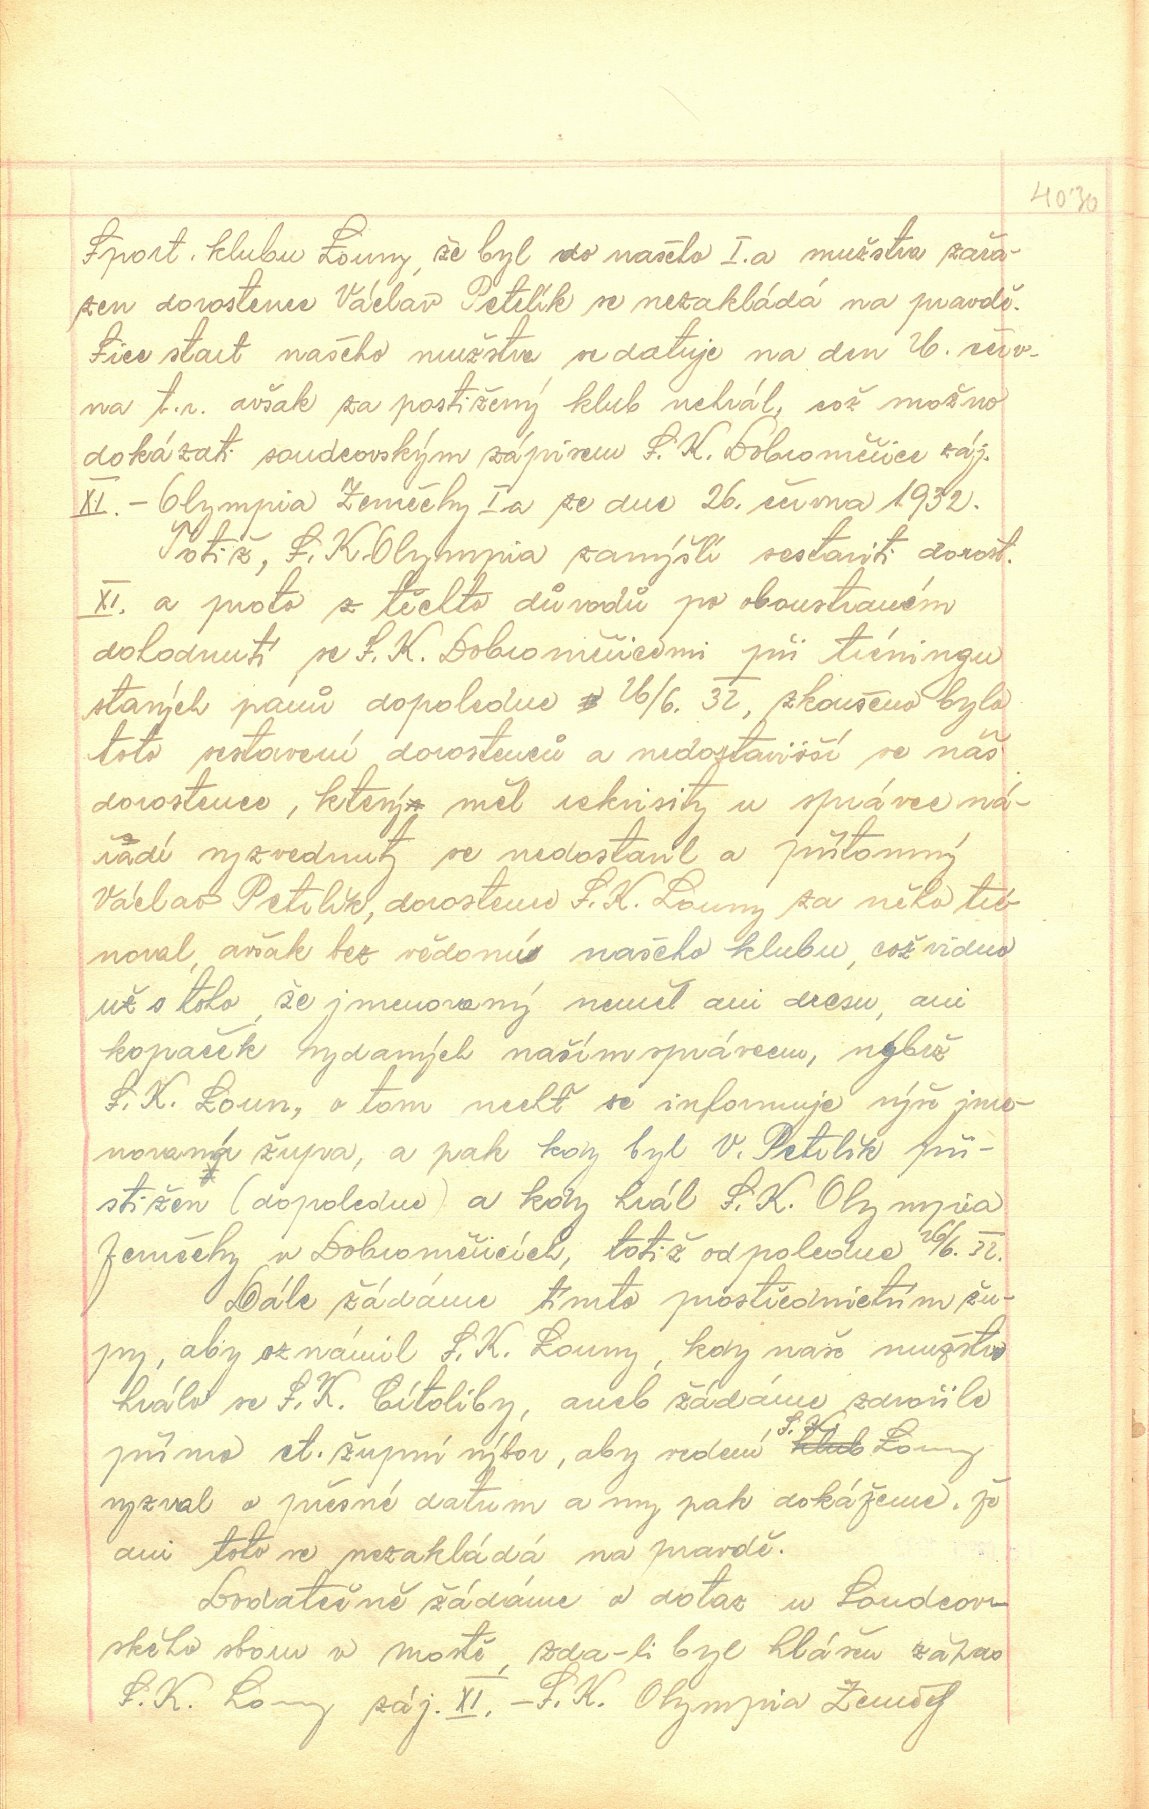 4030
Sport. klubu Louny, že byl do našeho I.a mužstva zařa-
zen dorostenec Václav Petrlík se nezakládá na pravdě.
Sice start našeho mužstva se datuje na den 26. červ-
na t.r. avšak za postižený klub nehrál, což možno
dokázati soudcovským zápisem S.K. Dobroměřice záj.
XI. - Olympia Zeměchy I a ze dne 26. června 1932.
Totiž, S.K. Olympia zamýšlí sestaviti dorost.
XI. a proto z těchto důvodů po oboustraném
dohodnutí se S.K. Dobroměřicemi při tréningu
starých pánů dopoledne 26/6. 32, zkoušeno bylo
toto sestavení dorostenců a nedostavivší se náš
dorostenec, který měl rekvisity u správce ná-
řadí vyzvednuty se nedostavil a přítomný
Václav Petrlík, dorostenec S.K. Louny za něho tré-
noval, avšak bez vědomí našeho klubu, což vidno
už s toho, že jmenovaný neměl ani dresu, ani
kopaček vydaných naším správcem, nýbrž
S.K. Loun, o tom nechť se informuje výše jme-
novaná župa, a pak kdy byl V. Petrlík při-
stižen (dopoledne) a kdy hrál S.K. Olympia
Zeměchy v Dobroměřicích, totiž odpoledne 26/6. 32.
Dále žádáme tímto prostřednictvím žu-
py, aby oznámil S.K. Louny, kdy naše mužstvo
hrálo se S.K. Cítoliby, aneb žádáme zdvořile
přímo ct. župní výbor, aby vedení klub S.K. Louny
vyzval o přesné datum a my pak dokážeme, že
ani toto se nezakládá na pravdě.
Dodatečně žádáme o dotaz u Soudcov-
ského sboru v Mostě, zda-li byl hlášen zápas
S.K. Louny záj. XI. - S.K. Olympia Zeměchy